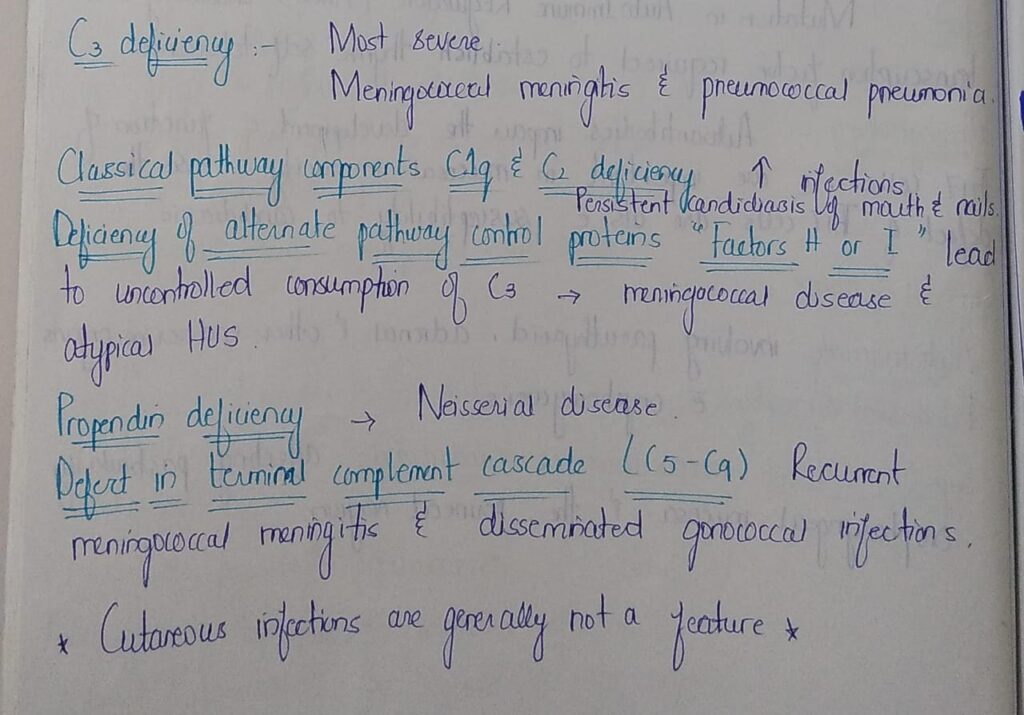 C3 deficiency :- Most severe.
Meningococcal meningitis & pneumococcal pneumonia.
Classical pathway components C1q & C2 deficiency ↑ infections
Persistent candidiasis of mouth & nails.
Deficiency of alternate pathway control proteins "Factors H or I" lead
to uncontrolled consumption of C3 → meningococcal disease &
atypical HUS.
Properdin deficiency → Neisserial disease.
Defect in terminal complement cascade (C5-C9) Recurrent
meningococcal meningitis & disseminated gonococcal infections.
* Cutaneous infections are generally not a feature *